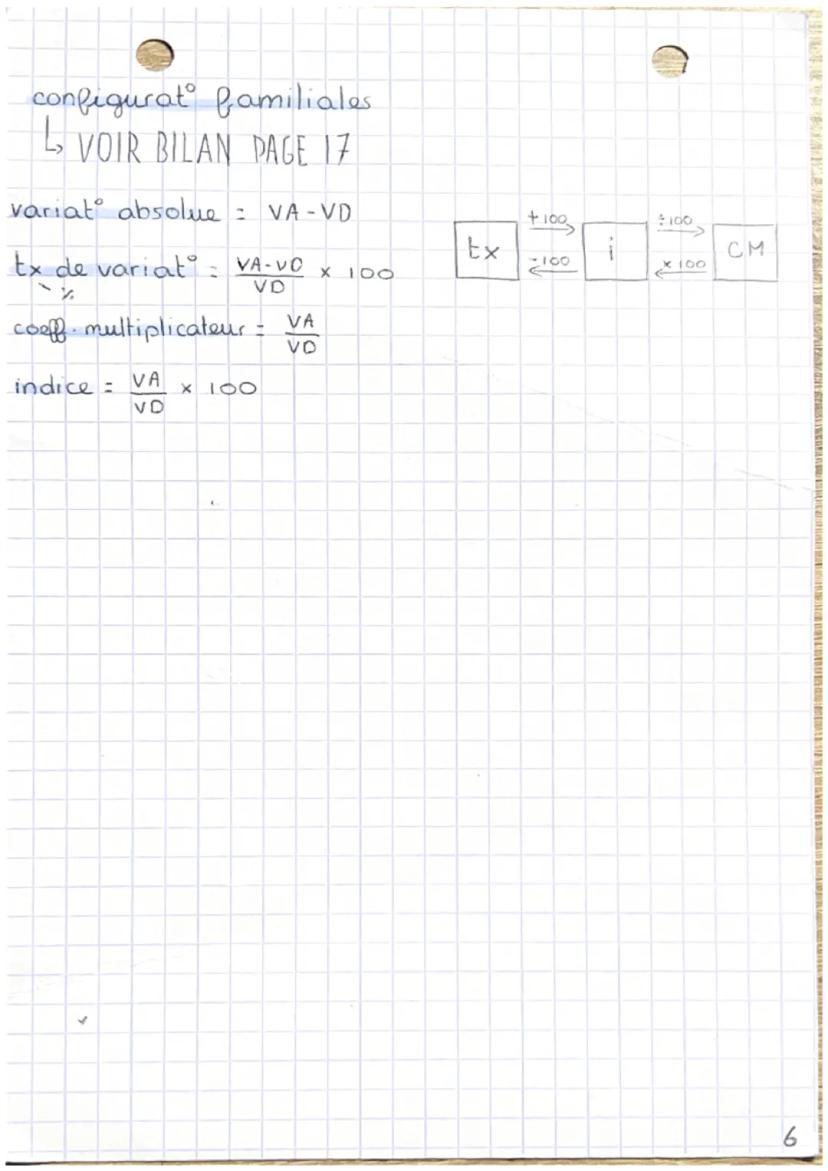 configurat° familiales
↳ VOIR BILAN PAGE 17
variat° absolue = VA - VD
tx de variat° = VA-VD / VD × 100
%
coeff. multiplicateur = VA / VD
indice = VA / VD × 100
tx +100 → i ÷100 → CM
← -100 ← × 100
6